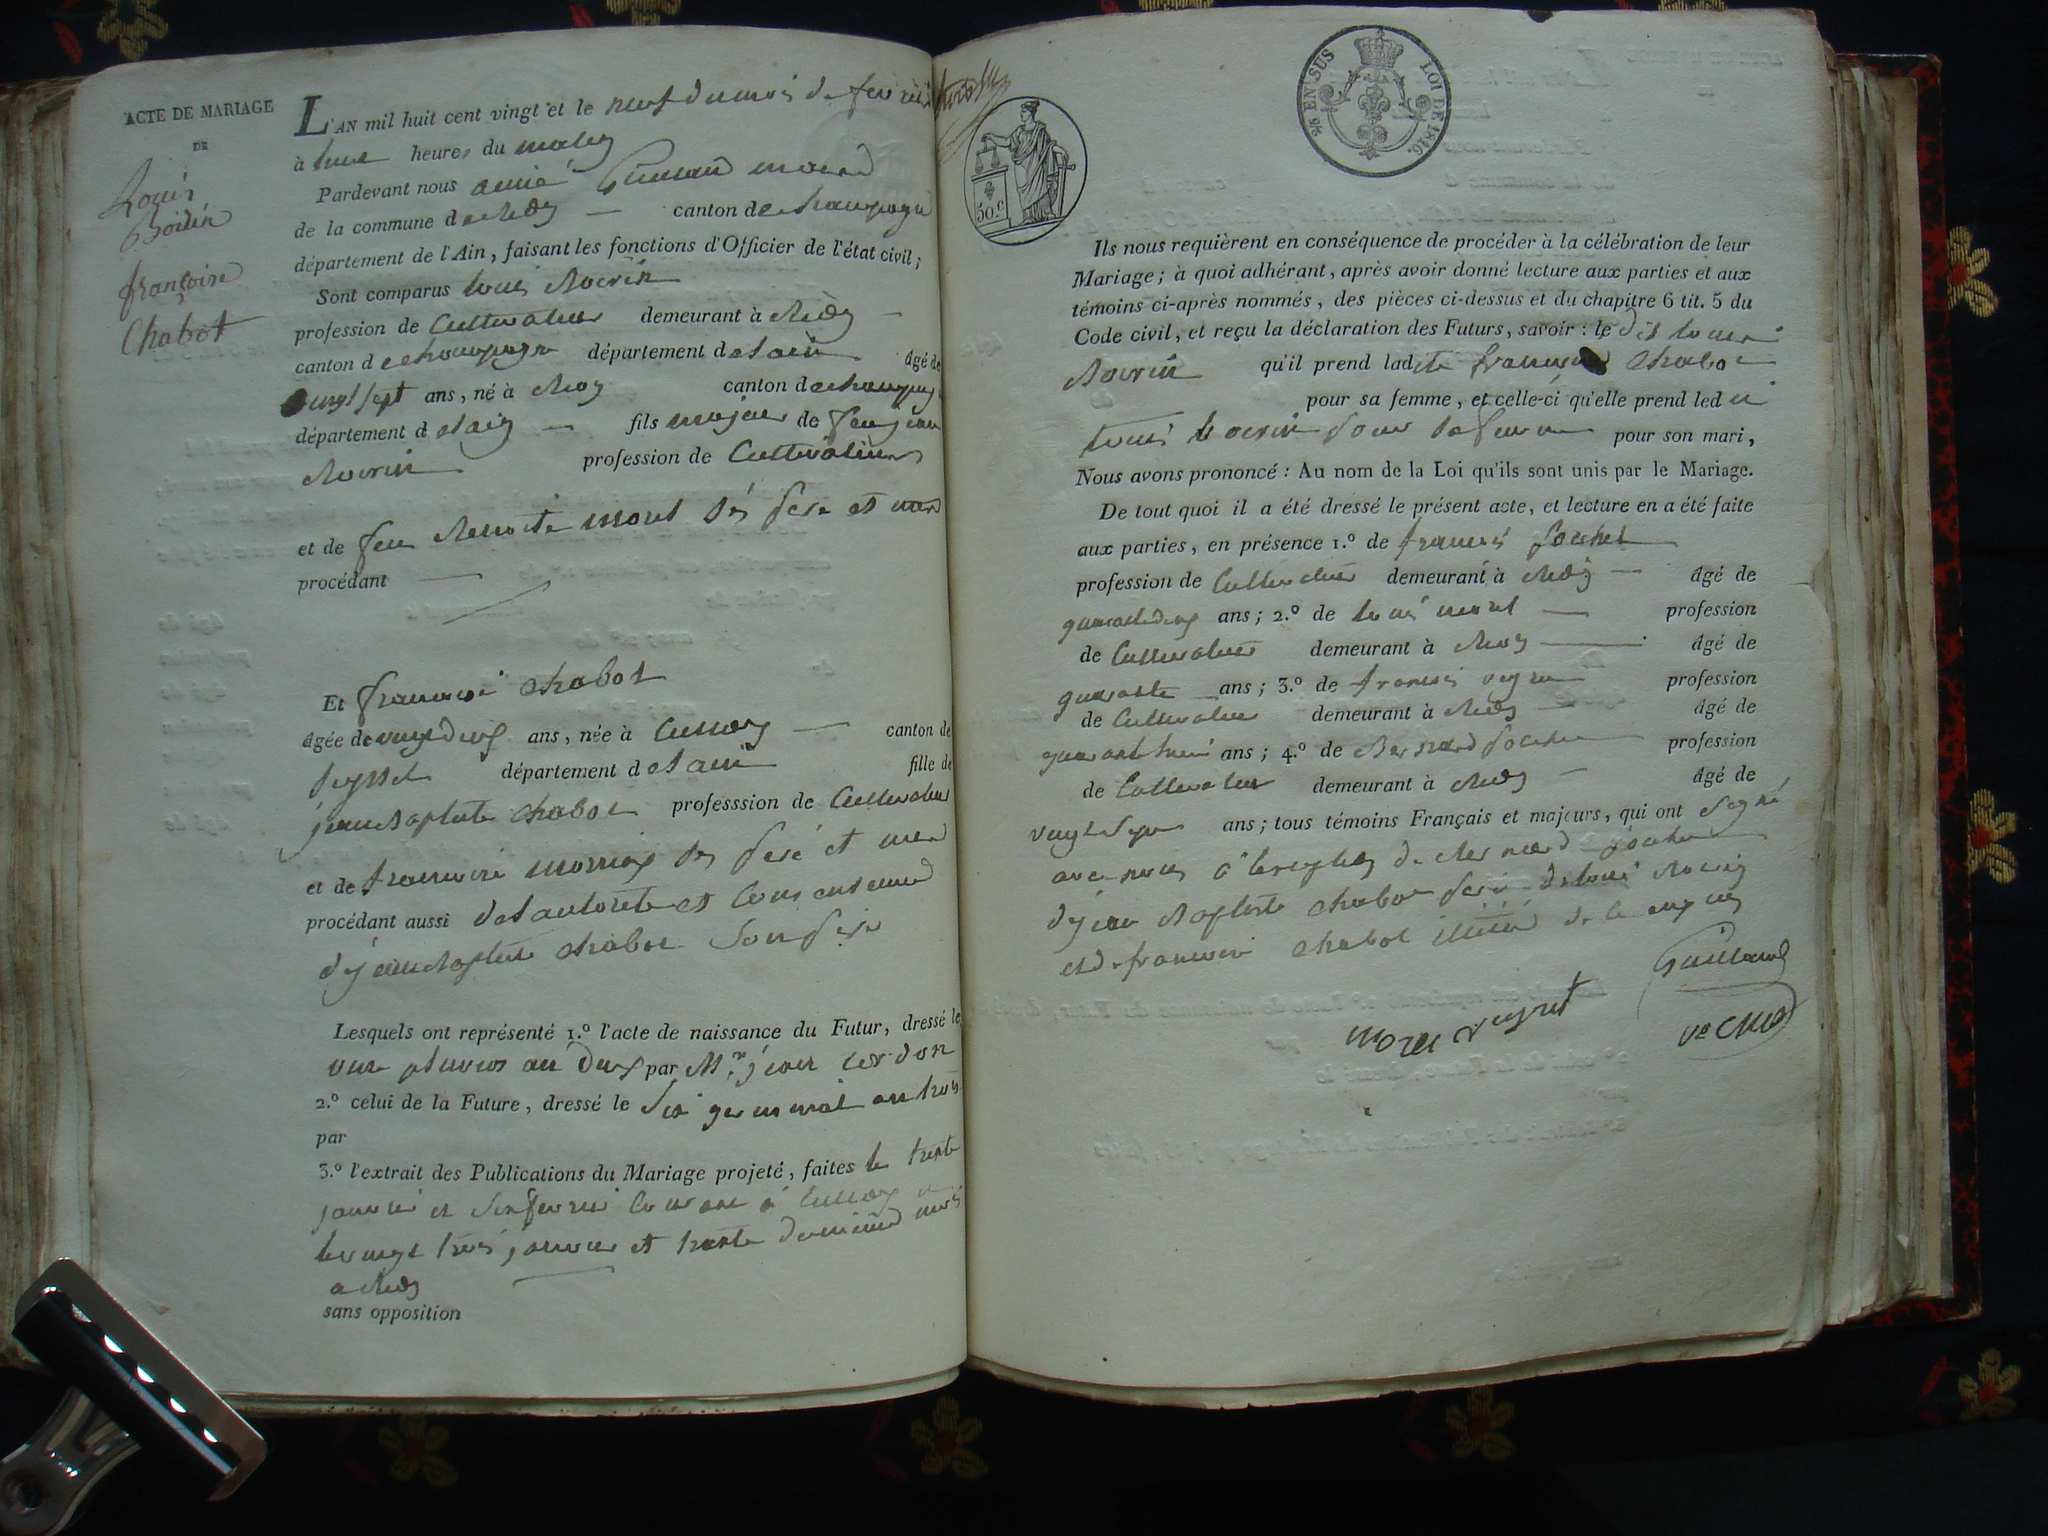 ACTE DE MARIAGE
DE
Louis
Boivin
françoise
Chabot
L'AN mil huit cent vingt et le neuf du mois de fevrier
à heures du matin
Pardevant nous aimé maire
de la commune de canton de champagne
département de l'Ain, faisant les fonctions d'Officier de l'état civil;
Sont comparus louis Boivin
profession de Cultivateur demeurant à
canton de champagne département de lain âgé de
vingt sept ans, né à canton de champagne
département de lain fils majeur de feu jean
Boivin profession de Cultivateur
et de feu Benoite morel ses père et mere
procédant
Et françoise chabot
âgée de vingt deux ans, née à canton de
Seyssel département de lain fille de
jean Baptiste chabot professsion de Cultivateur
et de françoise ses père et mere
procédant aussi de lautorité et consentement
de jean Baptiste chabot son père
Lesquels ont représenté 1.º l'acte de naissance du Futur, dressé le
pluvios an deux par M.r jean
2.º celui de la Future, dressé le six germinal an trois
par
3.º l'extrait des Publications du Mariage projeté, faites le trente
janvier et six fevrier courant à
le vingt trois janvier et trente du même mois
a
sans opposition
50.c
25 EN SUS LOI DE 1816.
Ils nous requièrent en conséquence de procéder à la célébration de leur
Mariage; à quoi adhérant, après avoir donné lecture aux parties et aux
témoins ci-après nommés, des pièces ci-dessus et du chapitre 6 tit. 5 du
Code civil, et reçu la déclaration des Futurs, savoir: le dit louis
Boivin qu'il prend ladite françoise chabot
pour sa femme, et celle-ci qu'elle prend led it
louis Boivin pour pour son mari,
Nous avons prononcé: Au nom de la Loi qu'ils sont unis par le Mariage.
De tout quoi il a été dressé le présent acte, et lecture en a été faite
aux parties, en présence 1.º de francois
profession de Cultivateur demeurant à âgé de
quarante deux ans; 2.º de louis morel profession
de Cultivateur demeurant à âgé de
quarante ans; 3.º de francois profession
de Cultivateur demeurant à âgé de
ans; 4.º de Bernard profession
de Cultivateur demeurant à âgé de
vingt sept ans; tous témoins Français et majeurs, qui ont signé
avec nous à lexception de Bernard
de jean Baptiste chabot père de louis Boivin
et de françoise chabot de ce enquis
morel